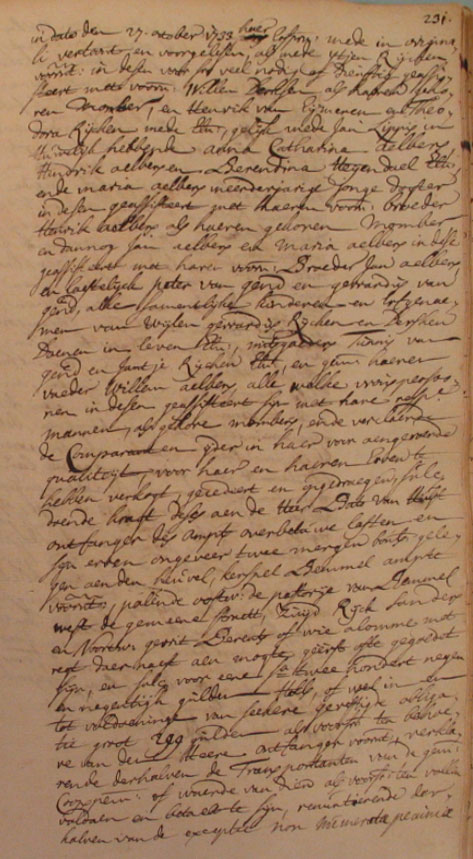 231.
in dato den 27. october 1733. hier mede in originali
vertoont en voorgelesen, als mede ytjen Rijcken
voorñt: in desen voor soo veel nodig of dienstig geassisteert
mette voorn: Willem Derksen als haeren gekoren
Momber, en Henrik van Eijmeren en Theodora
Rijcken mede Ehl:, gelijk mede Jan
Huwelijk hebbende Anna Catharina aelbers,
Hendrik aelbers en Berendina Hegendael Ehl:
ende maria aelbers meerderjarige jonge dogter
in desen geassisteert met haeren voorn: broeder
Henrik aelbers als haeren gekoren Momber
en dannog Jan aelbers en Maria aelbers in dese
geassisteert met haren voorn: Broeder Jan aelbers,
en lastelijk peter van gend en gerardus van
gend, alle samentlijke kinderen en Erfgenaemen
van wijlen gerrardus Rijcken en Dersken
Daenen in leven Ehl:, mitsgaders Teunis van
gend en Jantje Rijcken Ehl:, en haeren
vaeder Willem aelbers alle welke vrouspersonen
in desen geassisteert sijn met hare respe:
mannen, als gekore mombers, ende verclaerde
de Comparanten ijder in haer voor aengeroerde
qualiteijt voor haer en haeren Erven te
hebben verkogt, gecedeert en opgedraegen, sulx
doende kraft deses aen de Heer Dats van
ontfanger des ampts overbetuwe lasten en
sijn erven ongeveer twee mergen bouw gelegen
aen den heuvel, kerspel Bemmel ampte
voorñt, palende oostw: de pastorje van Bemmel
west de gemeene straett, Zuijd Rijck Sanders
en Noortw: gerrit Berents of wie alomme met
regt daer naest aen mogte geerft ofte gegoedet
sijn, en sulx voor eene sa: twee hondert negen
en negentijch gulden Holl:, of wel in en
tot voldoeninge van seekere gevestigde obligatie
groot 299 gulden als voorsz: ten behoere
van den Heere ontfanger voornt, verklarende
derhalven de Transportanten van de
Cooppenn: of waerde van dien als voorsz: ten vollen
voldaen en betaelt te sijn, renuntieerende derhalven
van de exceptie non numerata pecuniae